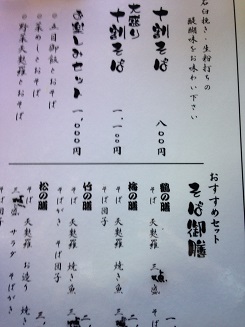 石臼挽き・生粉打ちの
醍醐味をお味わい下さい
十割そば 八〇〇円
大盛り
十割そば 一,一〇〇円
お楽しみセット 一,〇〇〇円
○五目御飯とおそば
○菜めしとおそば
○野菜天麩羅とおそば
おすすめセット
そば御膳
鶴の膳
そば 天麩羅 三点盛
梅の膳
そば 天麩羅 焼き魚
そば団子
竹の膳
そば 天麩羅 焼き魚
三点盛 そば団子
松の膳
そば 天麩羅 お造り 焼き
三点盛 サラダ そばがき
そば団子